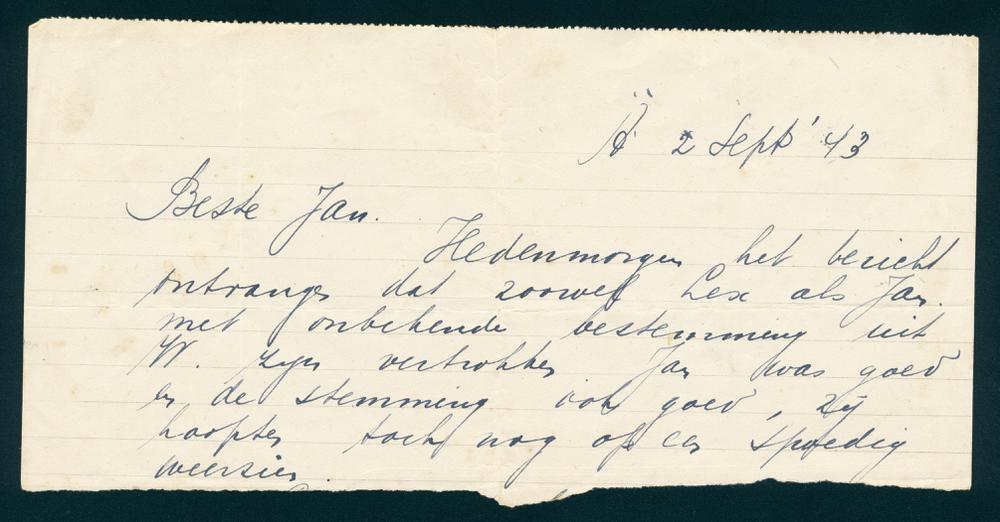 Ä 2 Sept '43
Beste Jan.
Hedenmorgen het bericht
ontvangen dat zoowel Lex als Jan.
met onbekende bestemming uit
W. zijn vertrokken Jan was goed
en de stemming ook goed, zij
hoopten toch nog op een spoedig
weerzien.